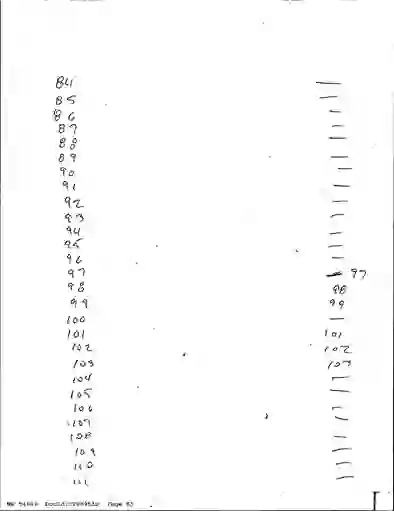 84 —
85 —
86 —
87 —
88 —
89 —
90 —
91 —
92 —
93 —
94 —
95 —
96 —
97 — 97
98 98
99 99
100 —
101 101
102 102
103 103
104 —
105 —
106 —
107 —
108 —
109 —
110 —
111 —
Page 83